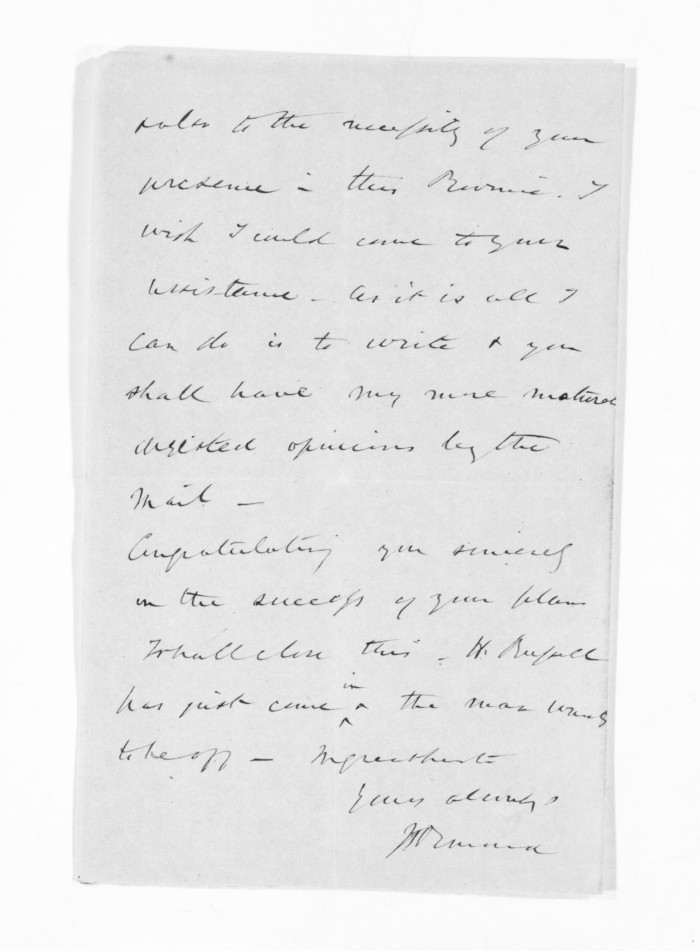 to the necessity of your
presence in this Province. I
wish I could come to your
assistance - As it is all I
can do is to write & you
shall have my more matured
digested opinions by the
Mail -
Congratulating you sincerely
on the success of your plans
I shall close this - H. Russell
has just come in & the man wants
to be off - In great haste
Yours always